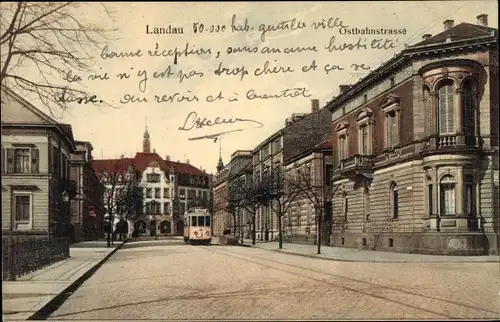 Landau
Ostbahnstrasse
50.000 hab. gentille ville
bonne réception, sans aucune hostilité
la vie n'y est pas trop chère et ça se
au revoir et à bientôt